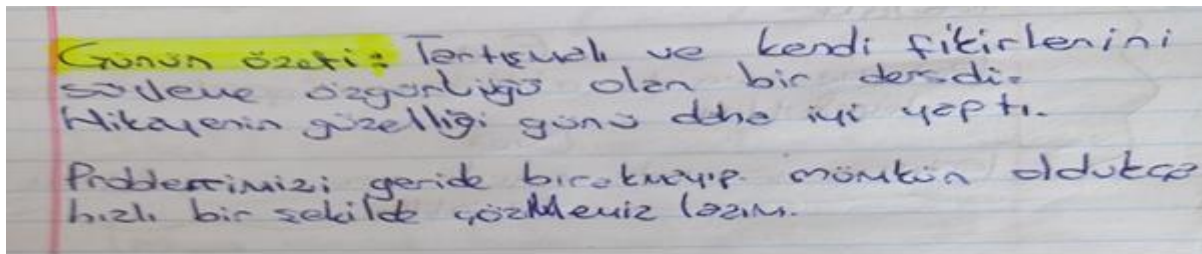 Günün özeti: Tartışmalı ve kendi fikirlerini
söyleme özgürlüğü olan bir dersdi.
Hikayenin güzelliği günü daha iyi yaptı.
Problemimizi geride bırakmayıp mümkün oldukça
hızlı bir şekilde çözmemiz lazım.